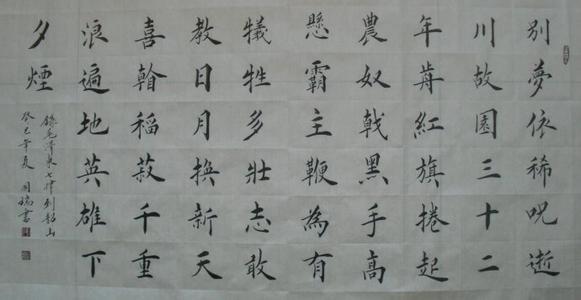 別夢依稀呪逝
川故園三十二
年歬紅旗捲起
農奴戟黑手高
懸霸主鞭為有
犧牲多壯志敢
教日月換新天
喜看稻菽千重
浪遍地英雄下
夕煙
錄毛澤東七律到韶山
癸巳年夏書